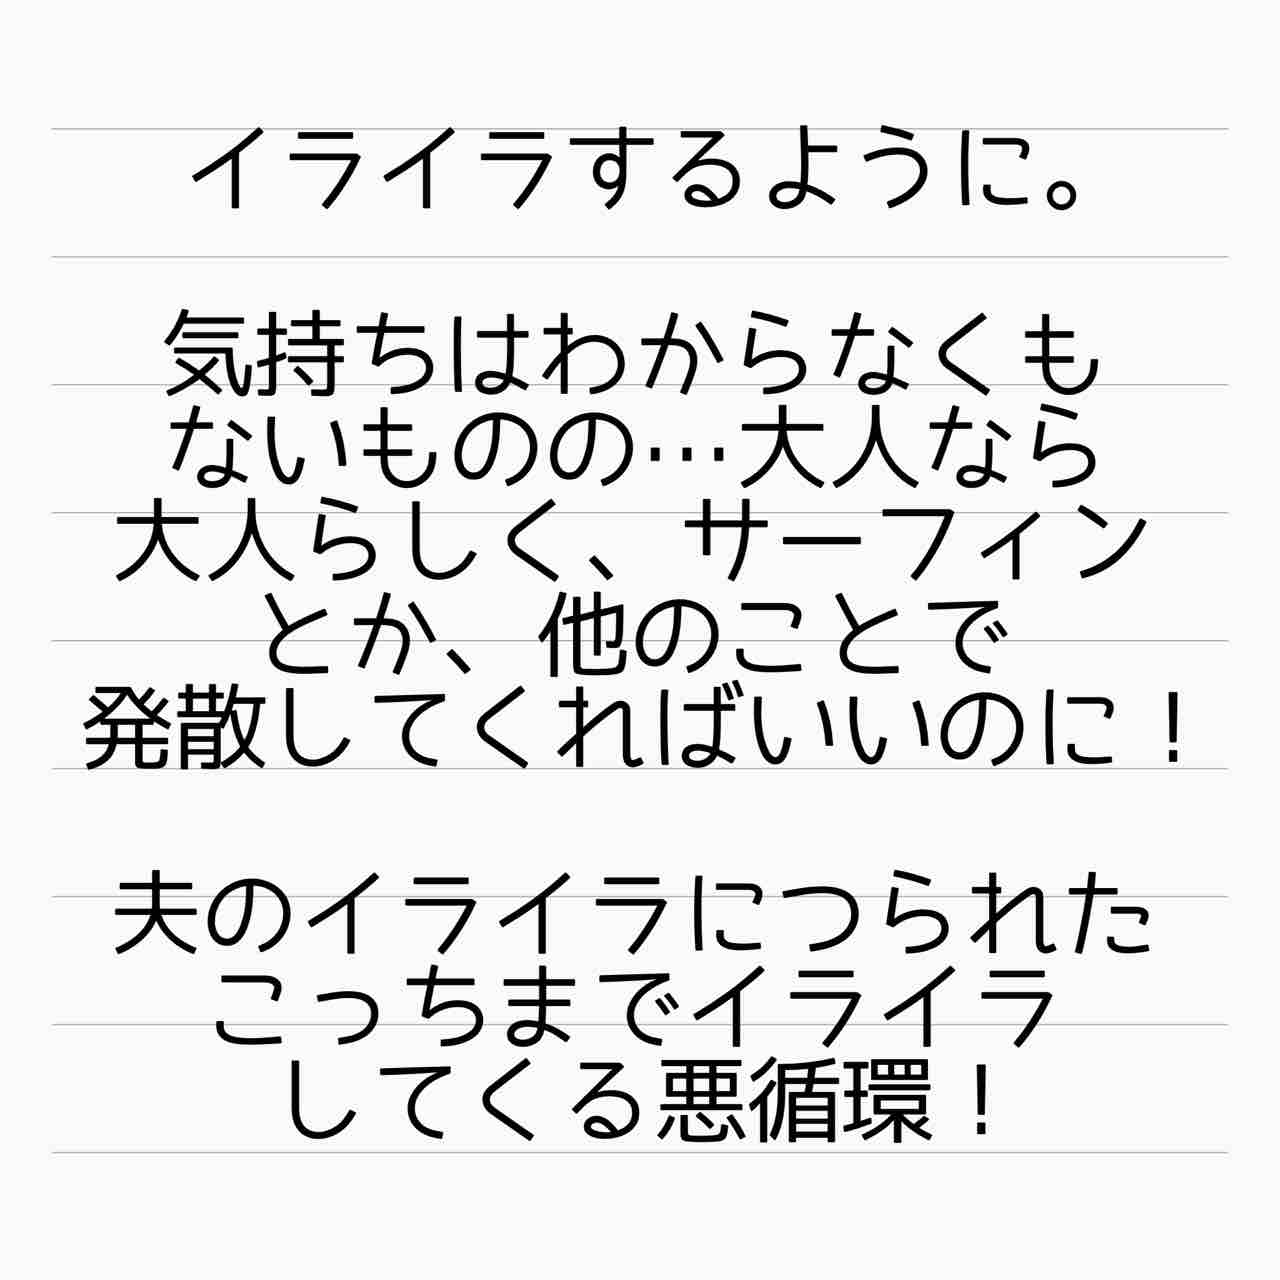 イライラするように。
気持ちはわからなくも
ないものの…大人なら
大人らしく、サーフィン
とか、他のことで
発散してくればいいのに！
夫のイライラにつられた
こっちまでイライラ
してくる悪循環！